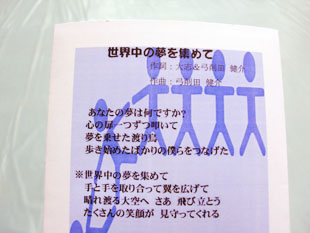 世界中の夢を集めて
作詞：大志&弓削田 健介
作曲：弓削田 健介
あなたの夢は何ですか?
心の扉一つずつ叩いて
夢を乗せた渡り鳥
歩き始めたばかりの僕らをつなげた
※世界中の夢を集めて
手と手を取り合って翼を広げて
晴れ渡る大空へ さあ 飛び立とう
たくさんの笑顔が 見守ってくれる